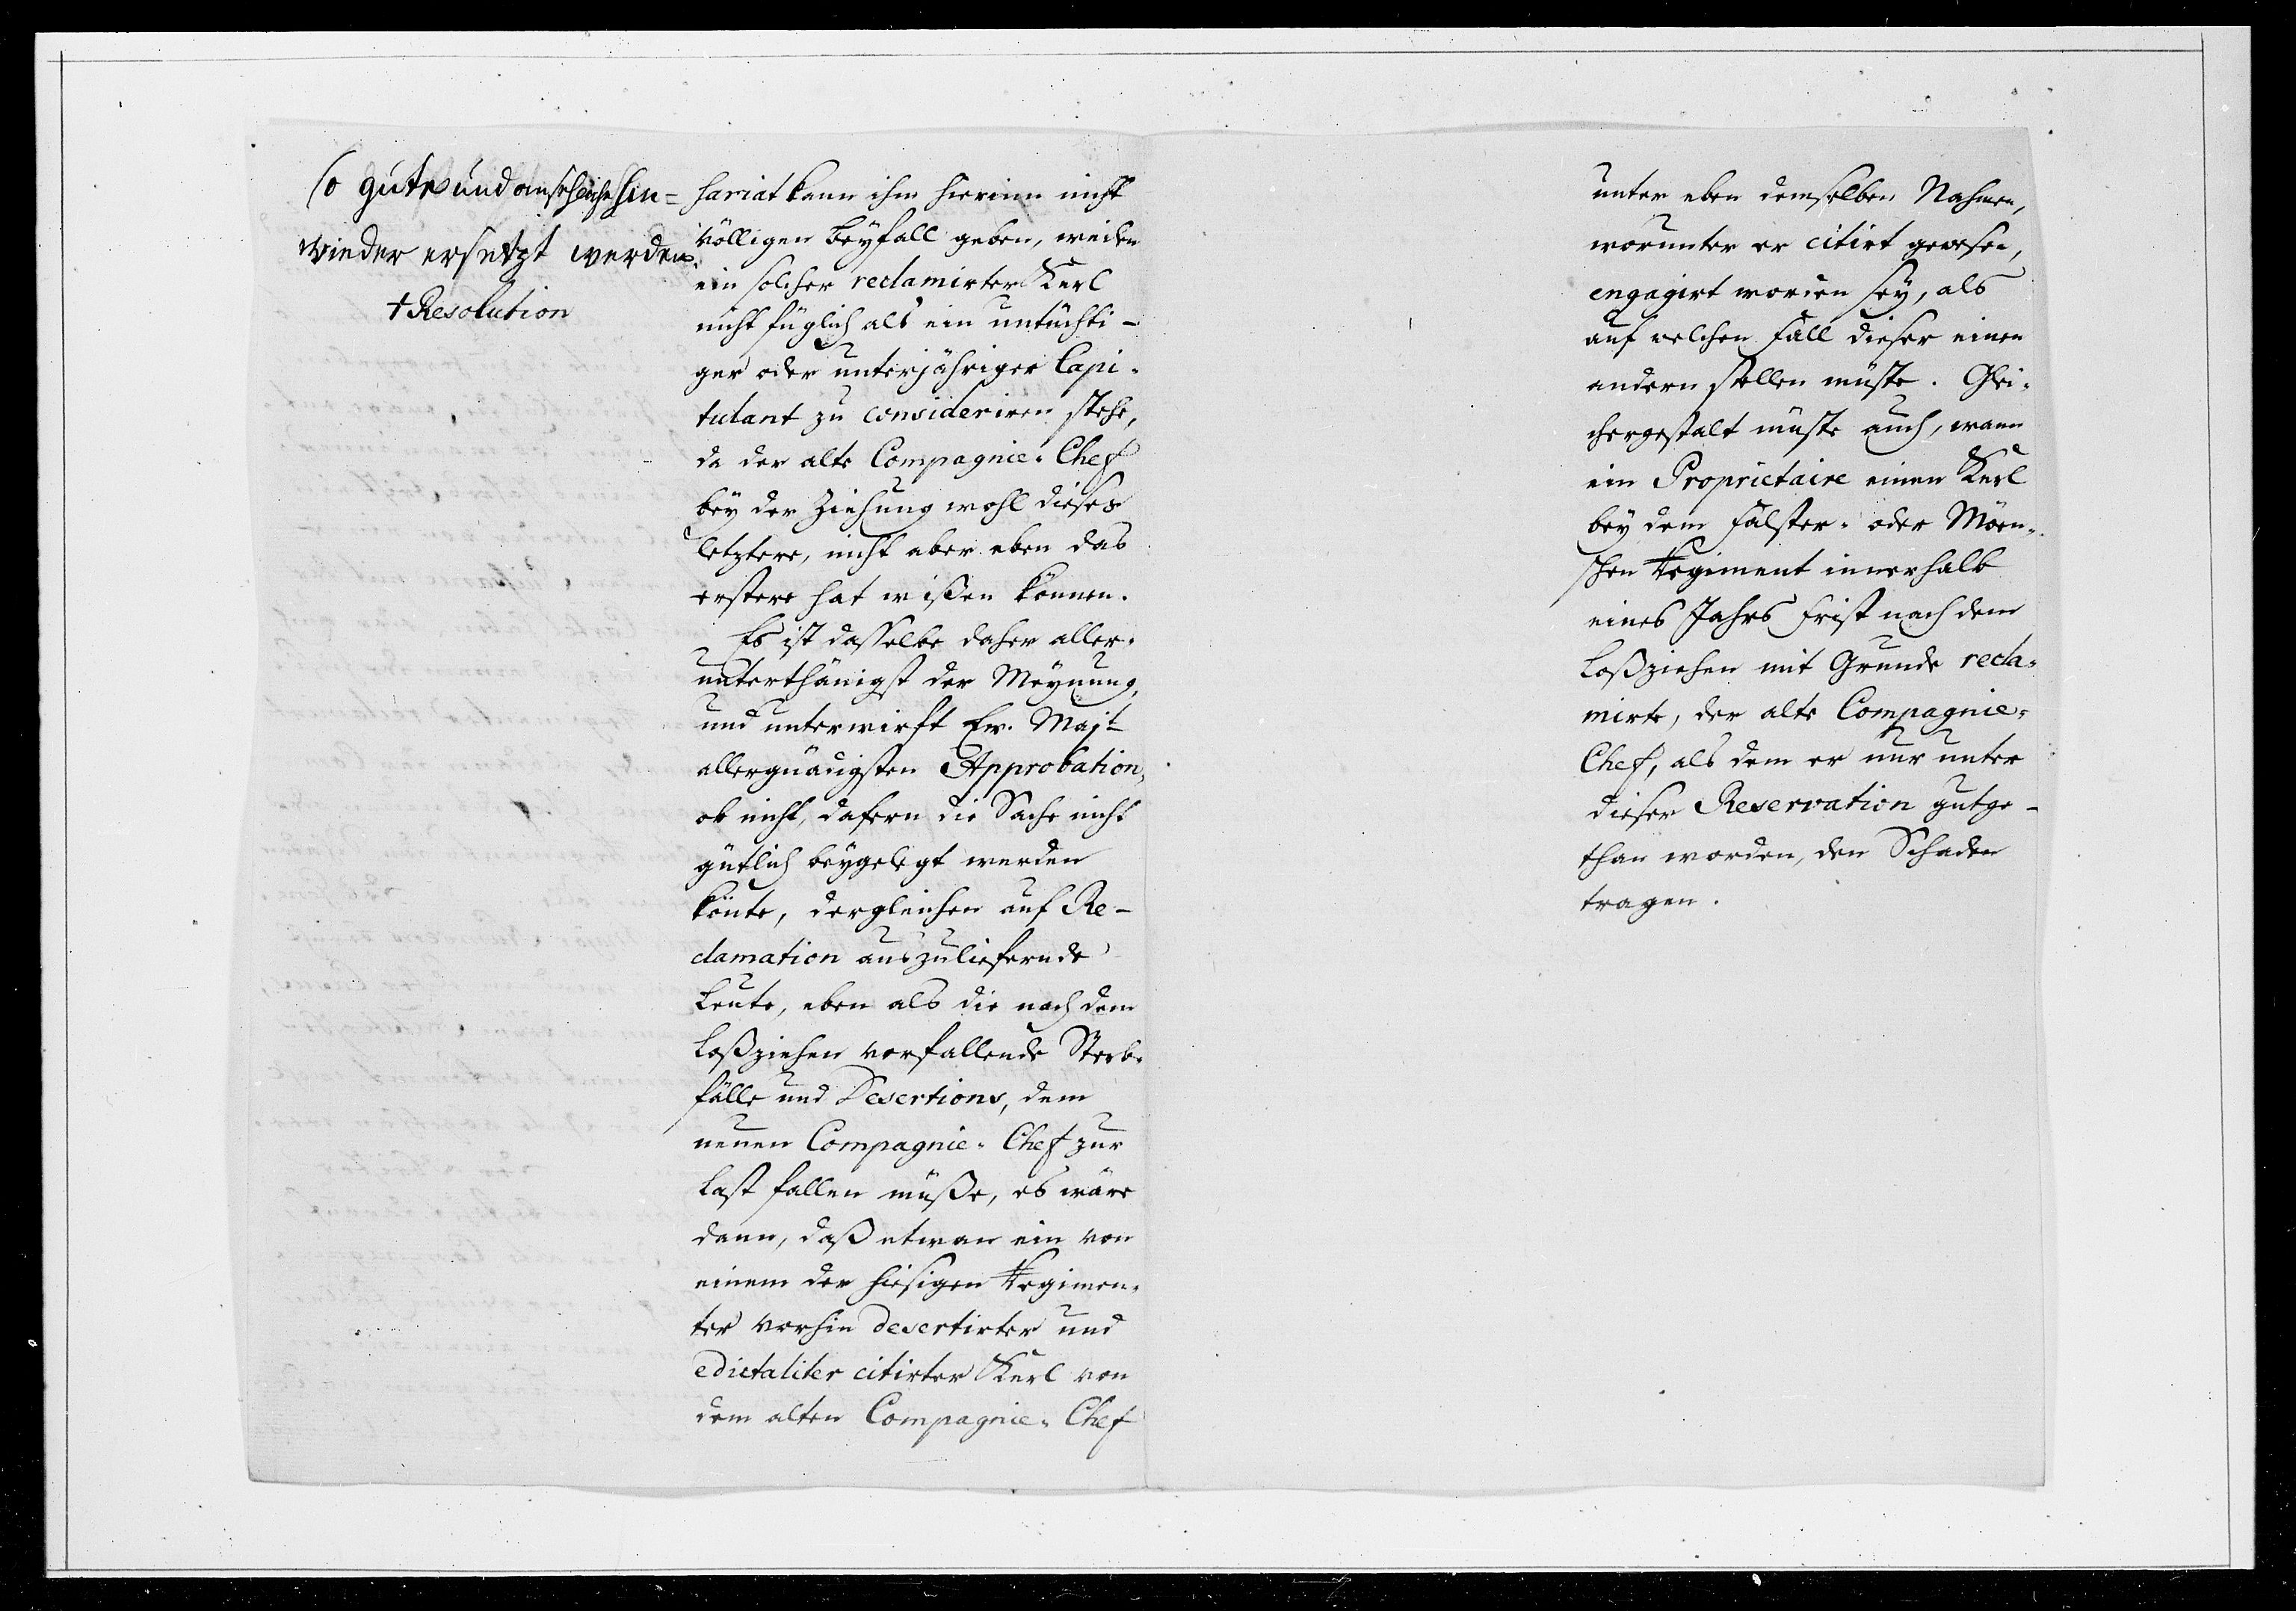 so gute und ansehnliche hin=
wieder ersetzt werden.
+ Resolution
sariat kann ihm hierinn nicht
völligen beyfall geben, weilen
ein solcher reclamirter Kerl
nicht füglich als ein untüchti-
ger oder unterjähriger Capi-
tulant zu consideriren stehe,
da der alte Compagnie-Chef
bey der Ziehung wohl dieses
letztere, nicht aber eben das
erstere hat wißen können.
Es ist dasselbe daher aller-
unterthänigst der Meynung,
und unterwirft Ew. Majt
allergnädigsten Approbation,
ob nicht, dafern die Sache nicht
gütlich beygelegt werden
könte, dergleichen auf Re-
clamation auszuliefernde
Leute, eben als die nach dem
Loßziehen vorfallende Sterb-
fälle und Desertions, dem
neuen Compagnie-Chef zur
Last fallen müße, es wäre
dann, daß etwan ein von
einem der hiesigen Regimen-
ter vorhin desertirter und
edictaliter citirter Kerl von
dem alten Compagnie-Chef
unter eben demselben Nahmen,
worunter er citirt gewesen,
engagirt worden sey, als
auf welchen Fall dieser einen
andern stellen müste. Glei-
chergestalt müste auch, wann
ein Proprietaire einen Kerl
bey dem Falster- oder Möen-
schen Regiment innerhalb
eines Jahrs Frist nach dem
Loßziehen mit Grunde recla-
mirte, der alte Compagnie-
Chef, als dem er nur unter
dieser Reservation gutge-
than worden, den Schaden
tragen.